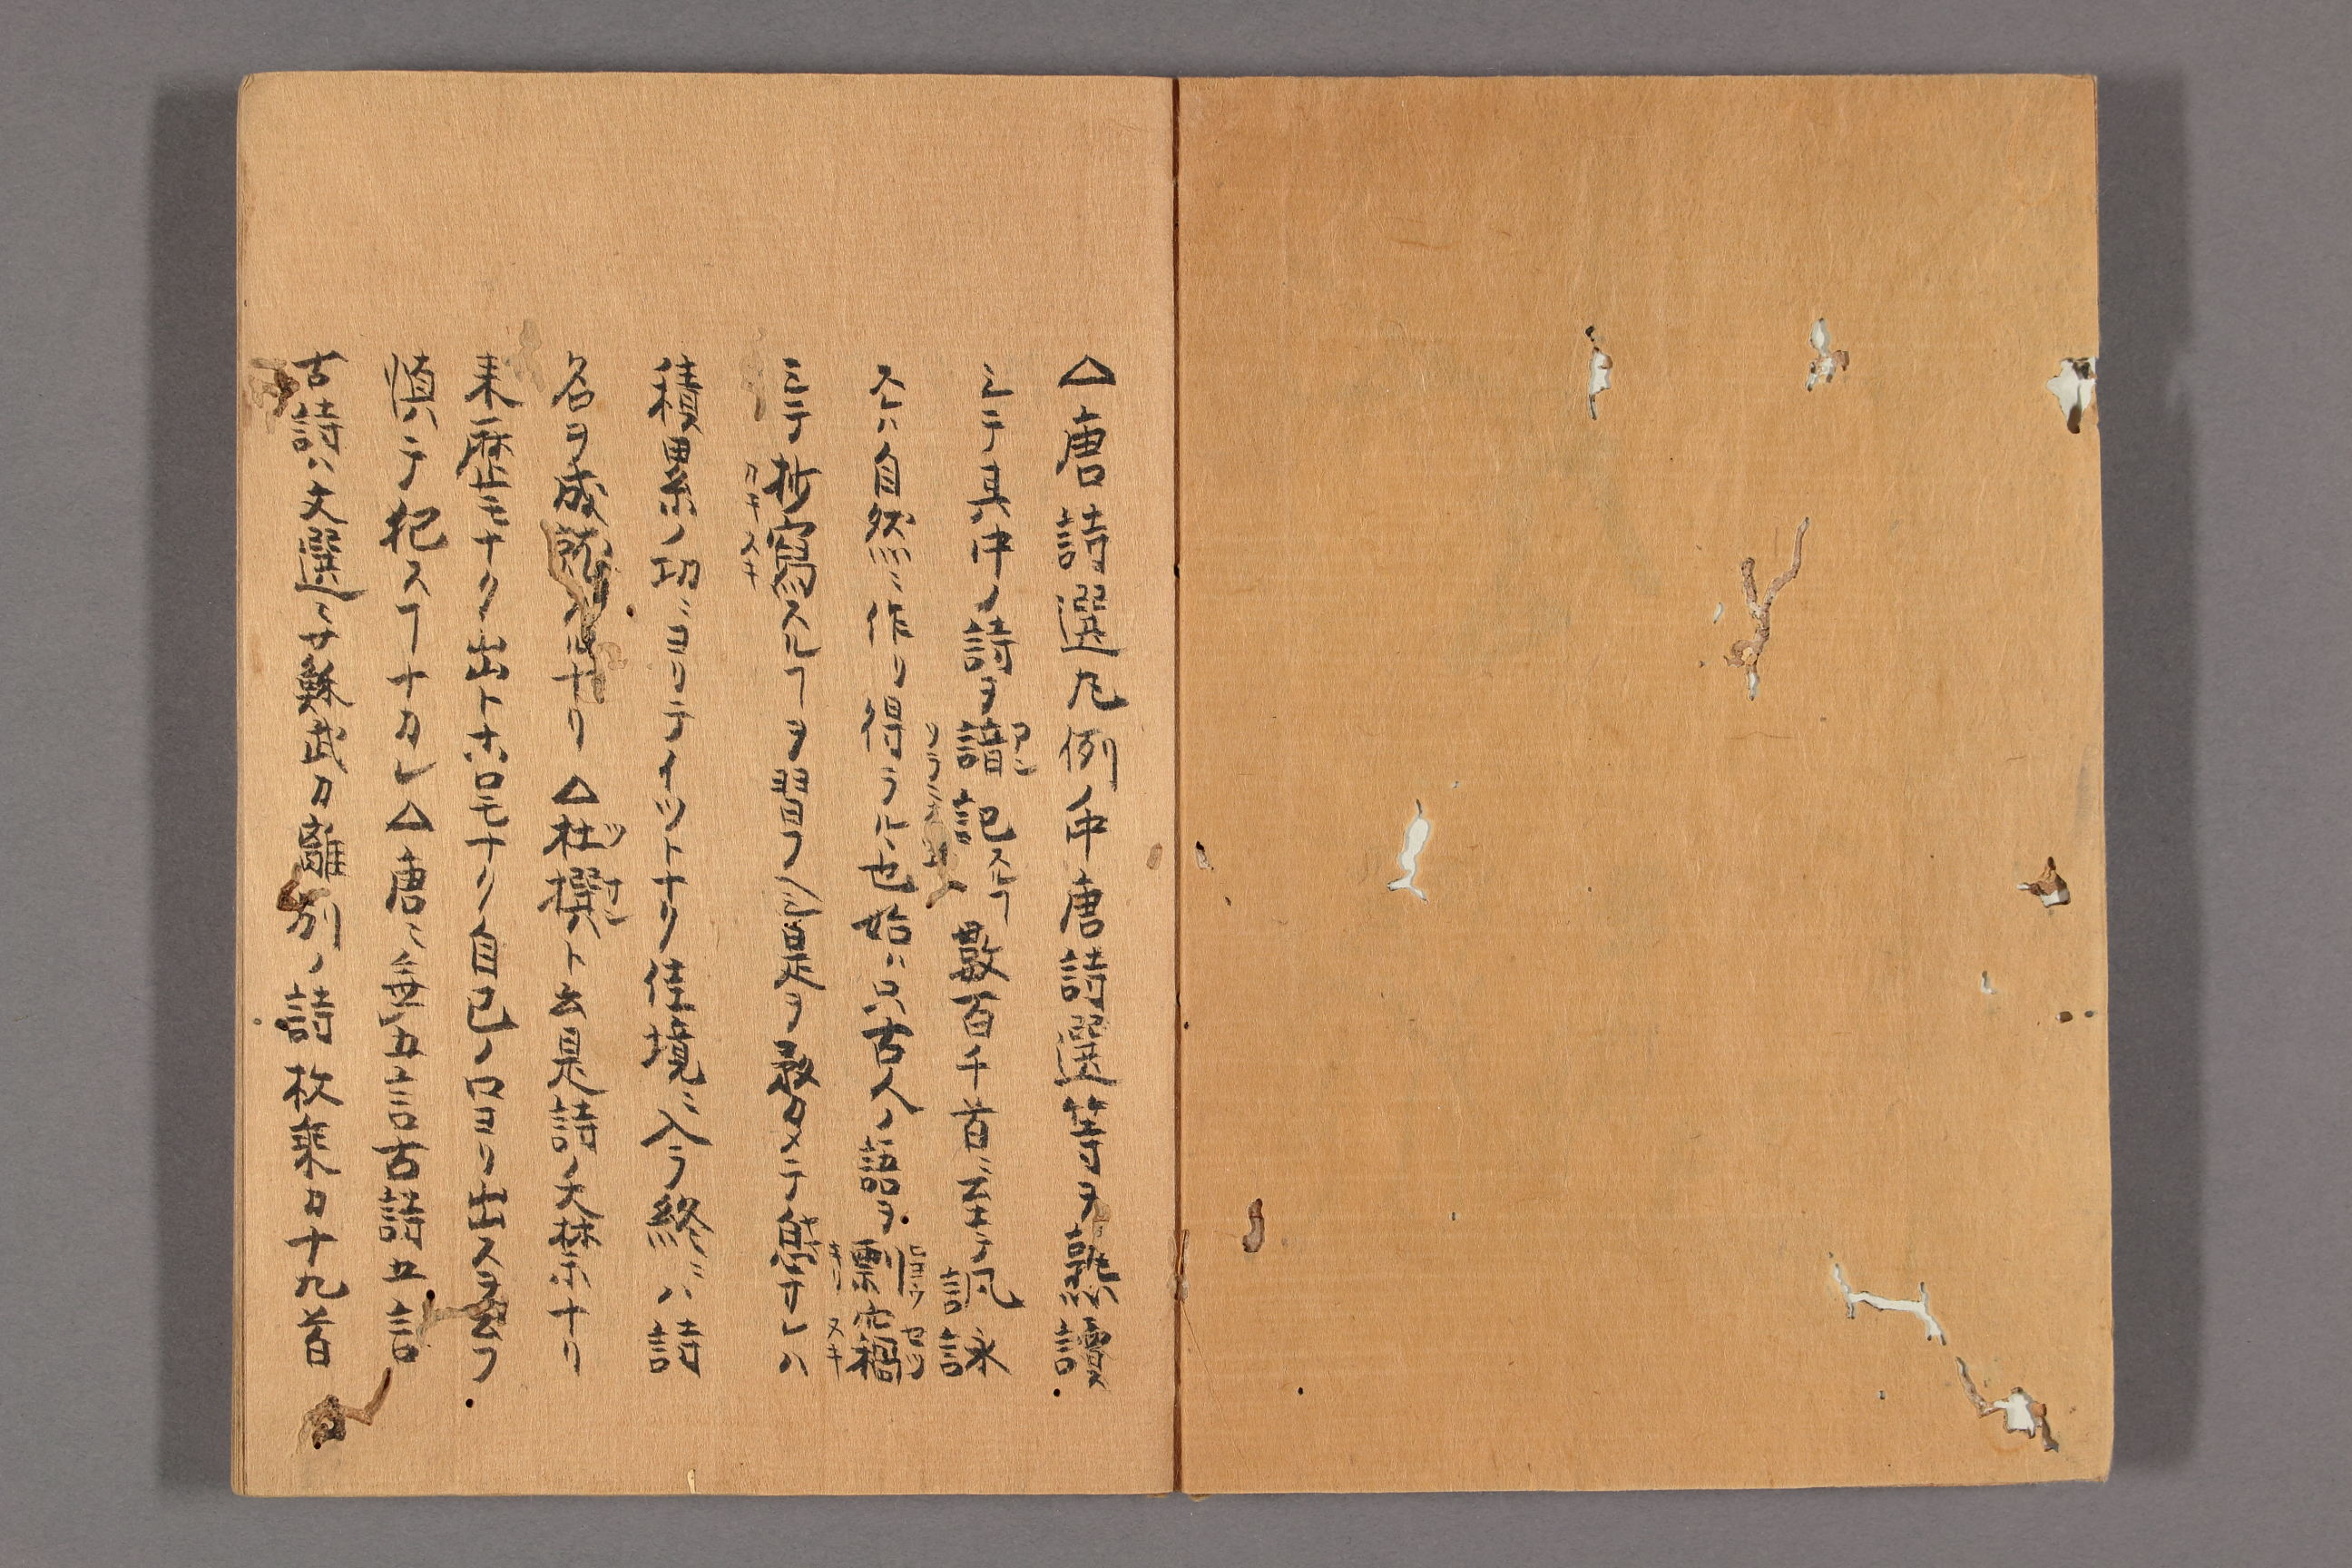 △唐詩選凡例ノ中唐詩選等ヲ熟讀
シテ其中ノ詩ヲ諳記スルヿ數百千首ニ至テ諷詠
スレハ自然ニ作リ得ラル也始ハ只古人ノ語ヲ剽竊
シテ抄寫スルヿヲ習フヘシ是ヲ最タメテ無ナレハ
積累ノ功ニヨリテイツトナク佳境ニ入ラ終ニハ詩
名ヲ成就スルナリ△杜撰ト云是詩ノ大禁ナリ
来歴モナク出トコロモナク自己ノ口ヨリ出スヲ云フ
慎テ犯スヿナカレ△唐ニ無五言古詩五言
古詩ハ文選ニテ蘇武カ離別ノ詩枚乗カ十九首